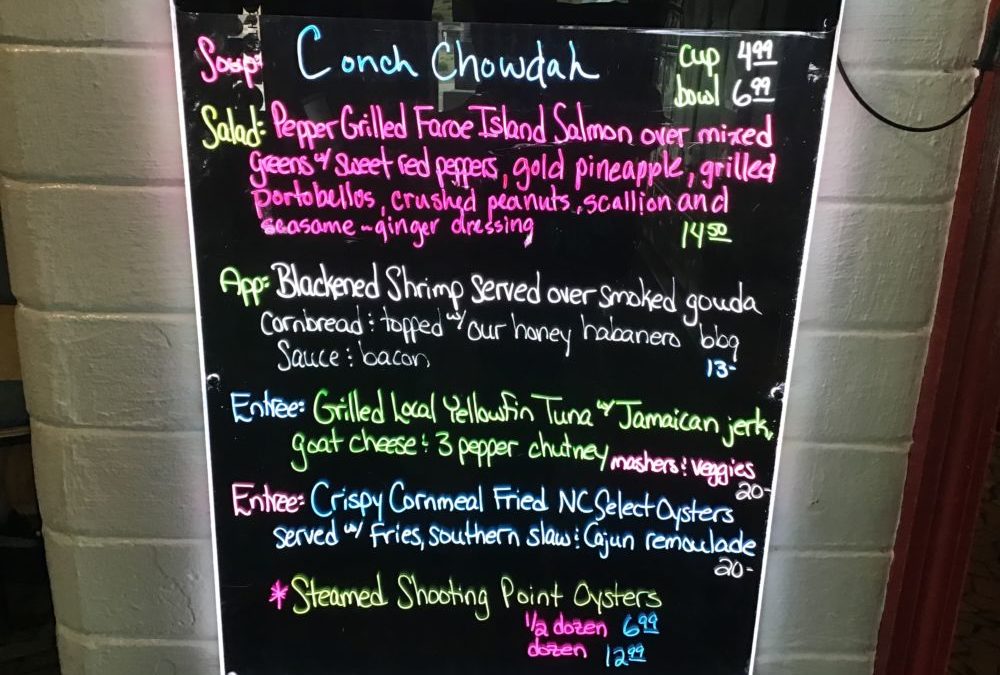 Soup: Conch Chowdah cup 4.99
bowl 6.99
Salad: Pepper Grilled Faroe Island Salmon over mixed
greens w/ sweet red peppers, gold pineapple, grilled
portobellos, crushed peanuts, scallion and
seasame-ginger dressing 14.50
App: Blackened Shrimp served over smoked gouda
cornbread & topped w/ our honey habanero bbq
sauce & bacon 13-
Entree: Grilled Local Yellowfin Tuna w/ Jamaican jerk,
goat cheese & 3 pepper chutney mashers & veggies
20-
Entree: Crispy Cornmeal Fried NC Select Oysters
served w/ Fries, southern slaw & Cajun remoulade
20-
*Steamed Shooting Point Oysters
1/2 dozen 6.99
dozen 12.99